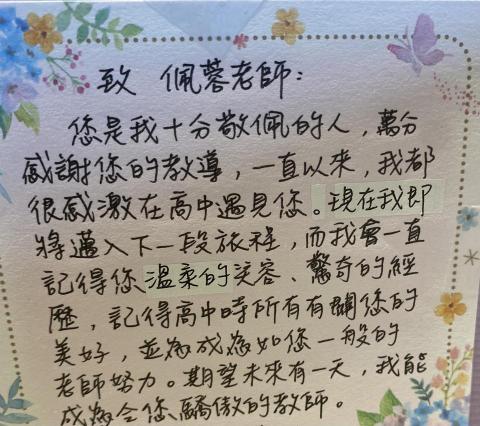 致 佩蓉老師：
您是我十分敬佩的人，萬分
感謝您的教導，一直以來，我都
很感激在高中遇見您。現在我即
將邁入下一段旅程，而我會一直
記得您溫柔的笑容、驚奇的經
歷，記得高中時所有有關您的
美好，並為成為如您一般的
老師努力。期望未來有一天，我能
成為令您驕傲的教師。